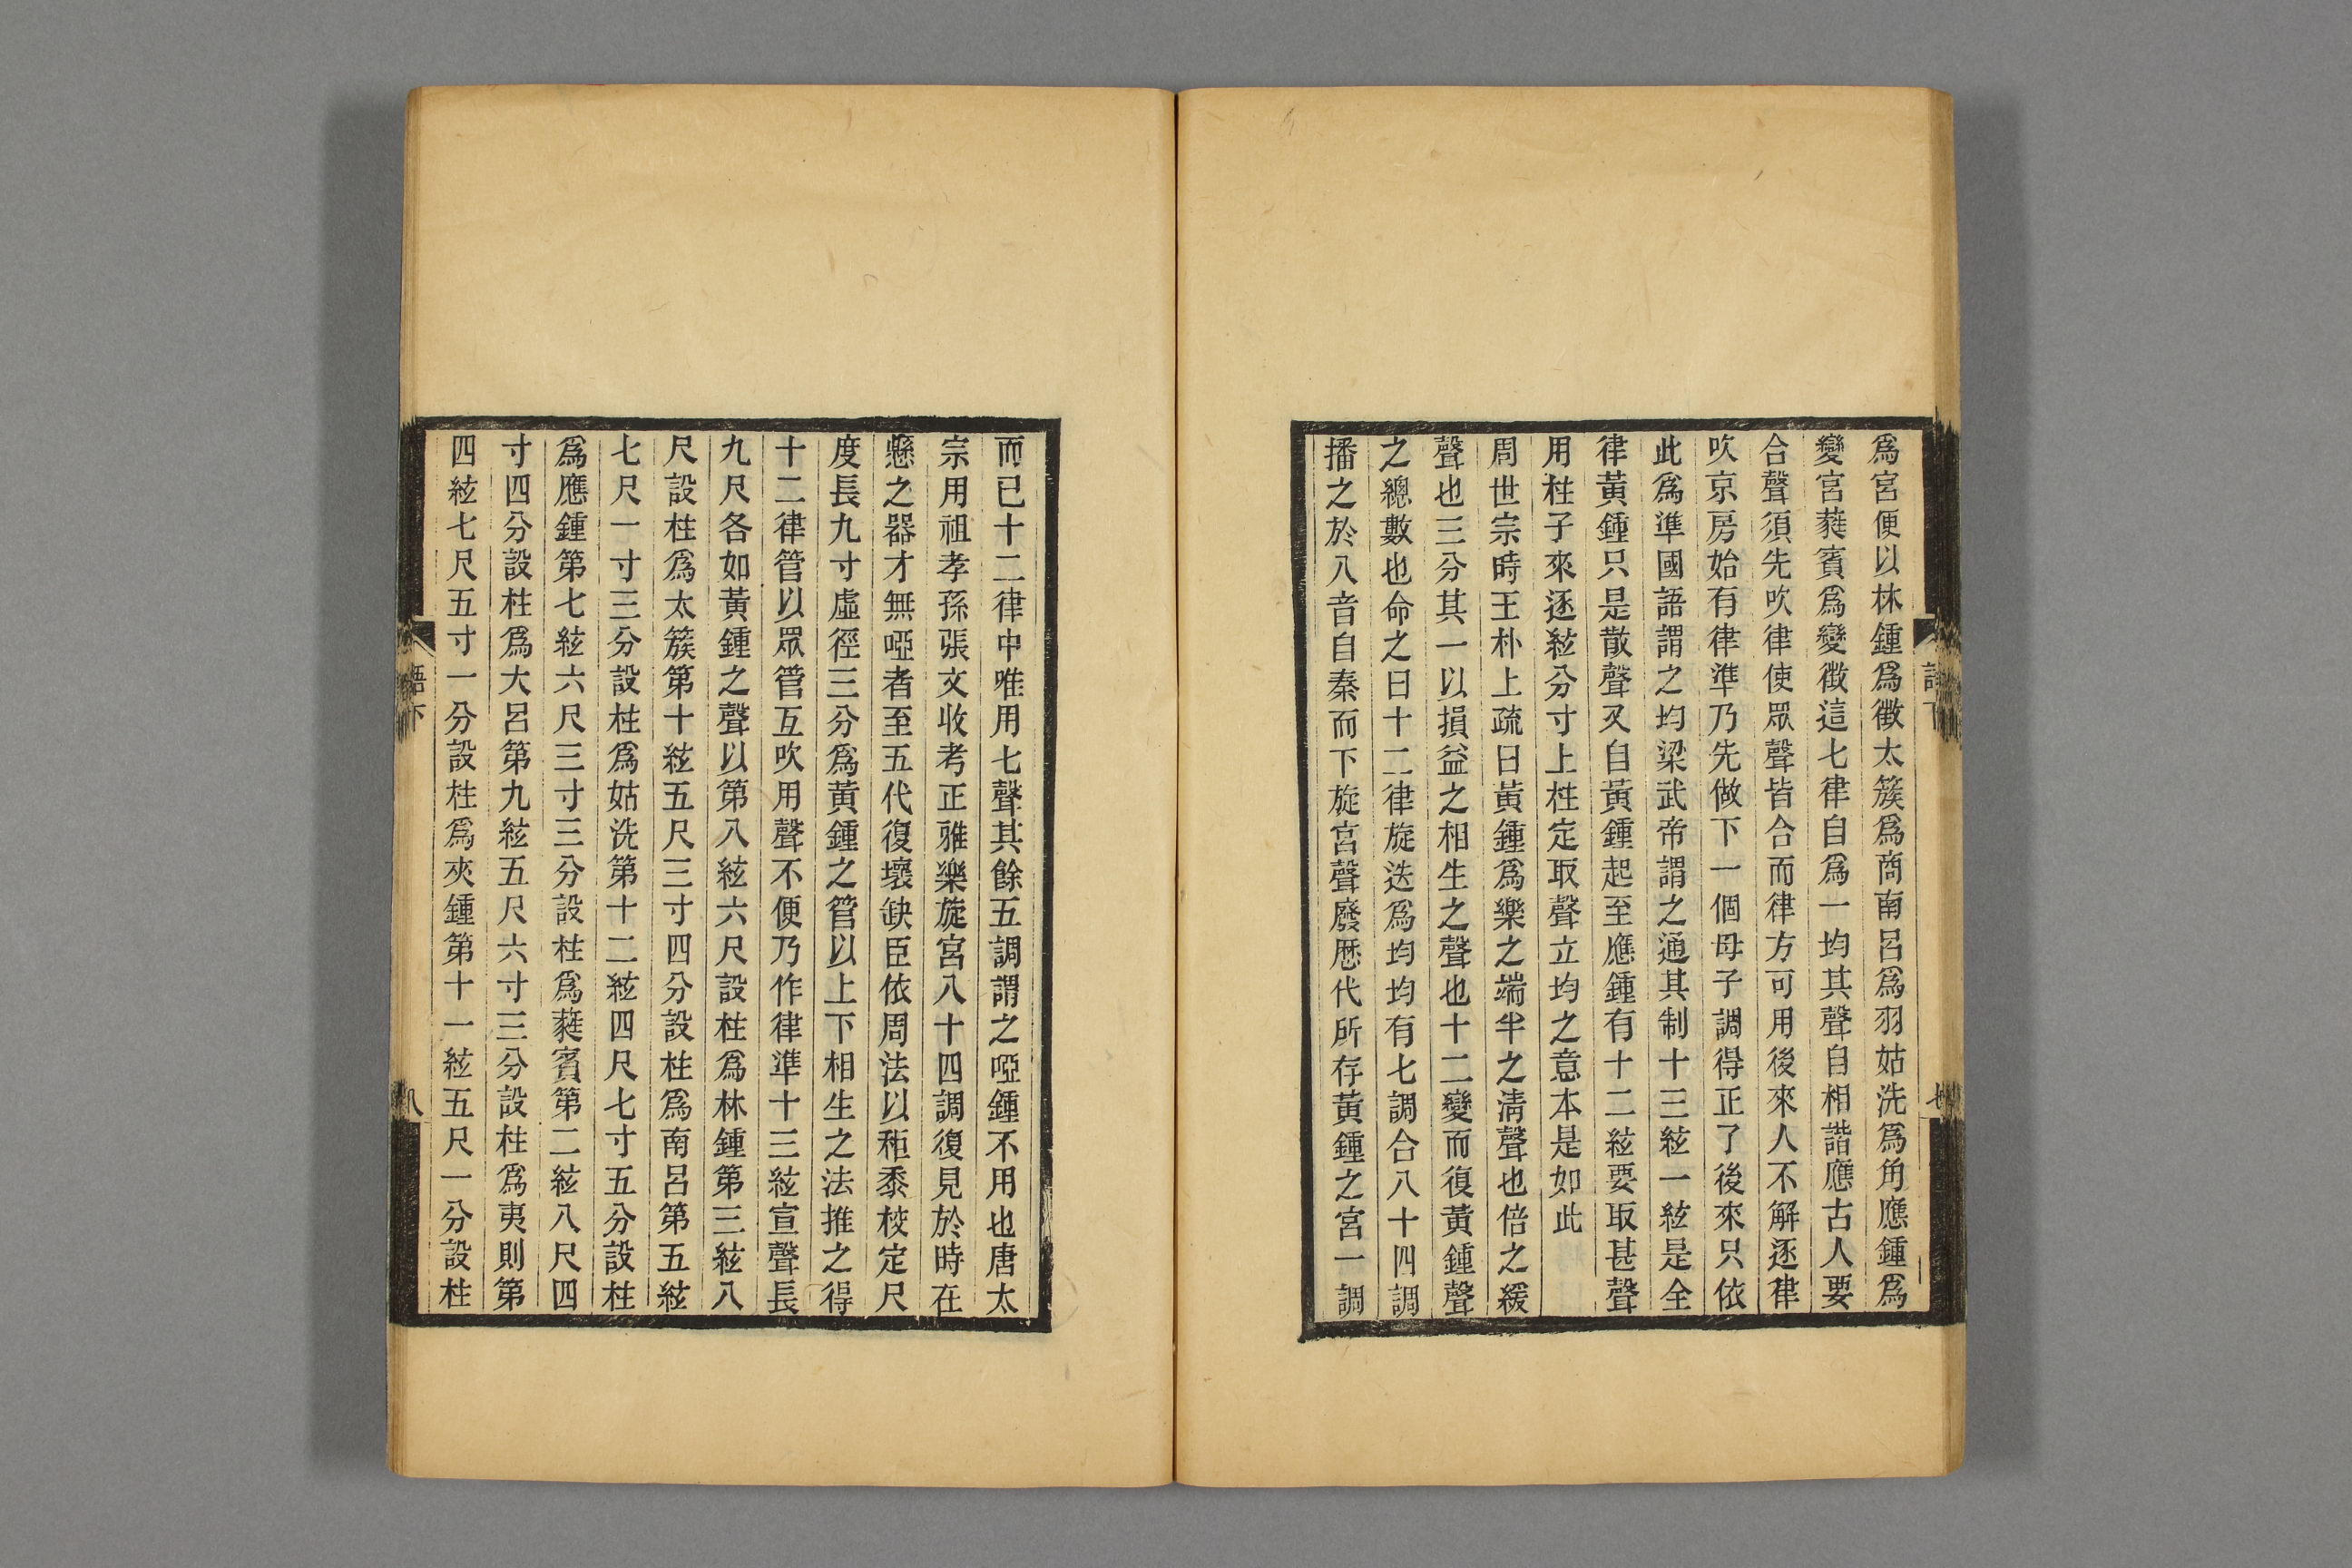 爲宮便以林鍾爲徵太簇爲商南呂爲羽姑洗爲角應鍾爲
變宮蕤賓爲變徵這七律自爲一均其聲自相諧應古人要
合聲須先吹律使眾聲皆合而律方可用後來人不解逐律
吹京房始有律準乃先做下一個母子調得正了後來只依
此爲準國語謂之均梁武帝謂之通其制十三絃一絃是全
律黃鍾只是散聲又自黃鍾起至應鍾有十二絃要取甚聲
用柱子來逐絃分寸上柱定取聲立均之意本是如此
周世宗時王朴上疏曰黃鍾爲樂之端半之清聲也倍之緩
聲也三分其一以損益之相生之聲也十二變而復黃鍾聲
之總數也命之曰十二律旋迭爲均均有七調合八十四調
播之於八音自秦而下旋宮聲廢歷代所存黃鍾之宮一調
而已十二律中唯用七聲其餘五調謂之啞鍾不用也唐太
宗用祖孝孫張文收考正雅樂旋宮八十四調復見於時在
懸之器才無啞者至五代復壞缺臣依周法以秬黍校定尺
度長九寸虛徑三分爲黃鍾之管以上下相生之法推之得
十二律管以眾管互吹用聲不便乃作律準十三絃宣聲長
九尺各如黃鍾之聲以第八絃六尺設柱爲林鍾第三絃八
尺設柱爲太簇第十絃五尺三寸四分設柱爲南呂第五絃
七尺一寸三分設柱爲姑洗第十二絃四尺七寸五分設柱
爲應鍾第七絃六尺三寸三分設柱爲蕤賓第二絃八尺四
寸四分設柱爲大呂第九絃五尺六寸三分設柱爲夷則第
四絃七尺五寸一分設柱爲夾鍾第十一絃五尺一分設柱
語下
八